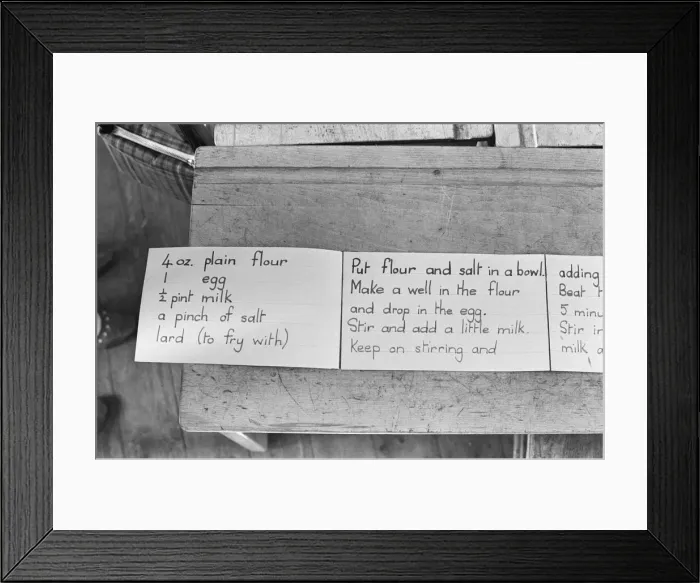 4 oz. plain flour
1 egg
½ pint milk
a pinch of salt
lard (to fry with)
Put flour and salt in a bowl.
Make a well in the flour
and drop in the egg.
Stir and add a little milk.
Keep on stirring and
adding
Beat
5 minu
Stir in
milk